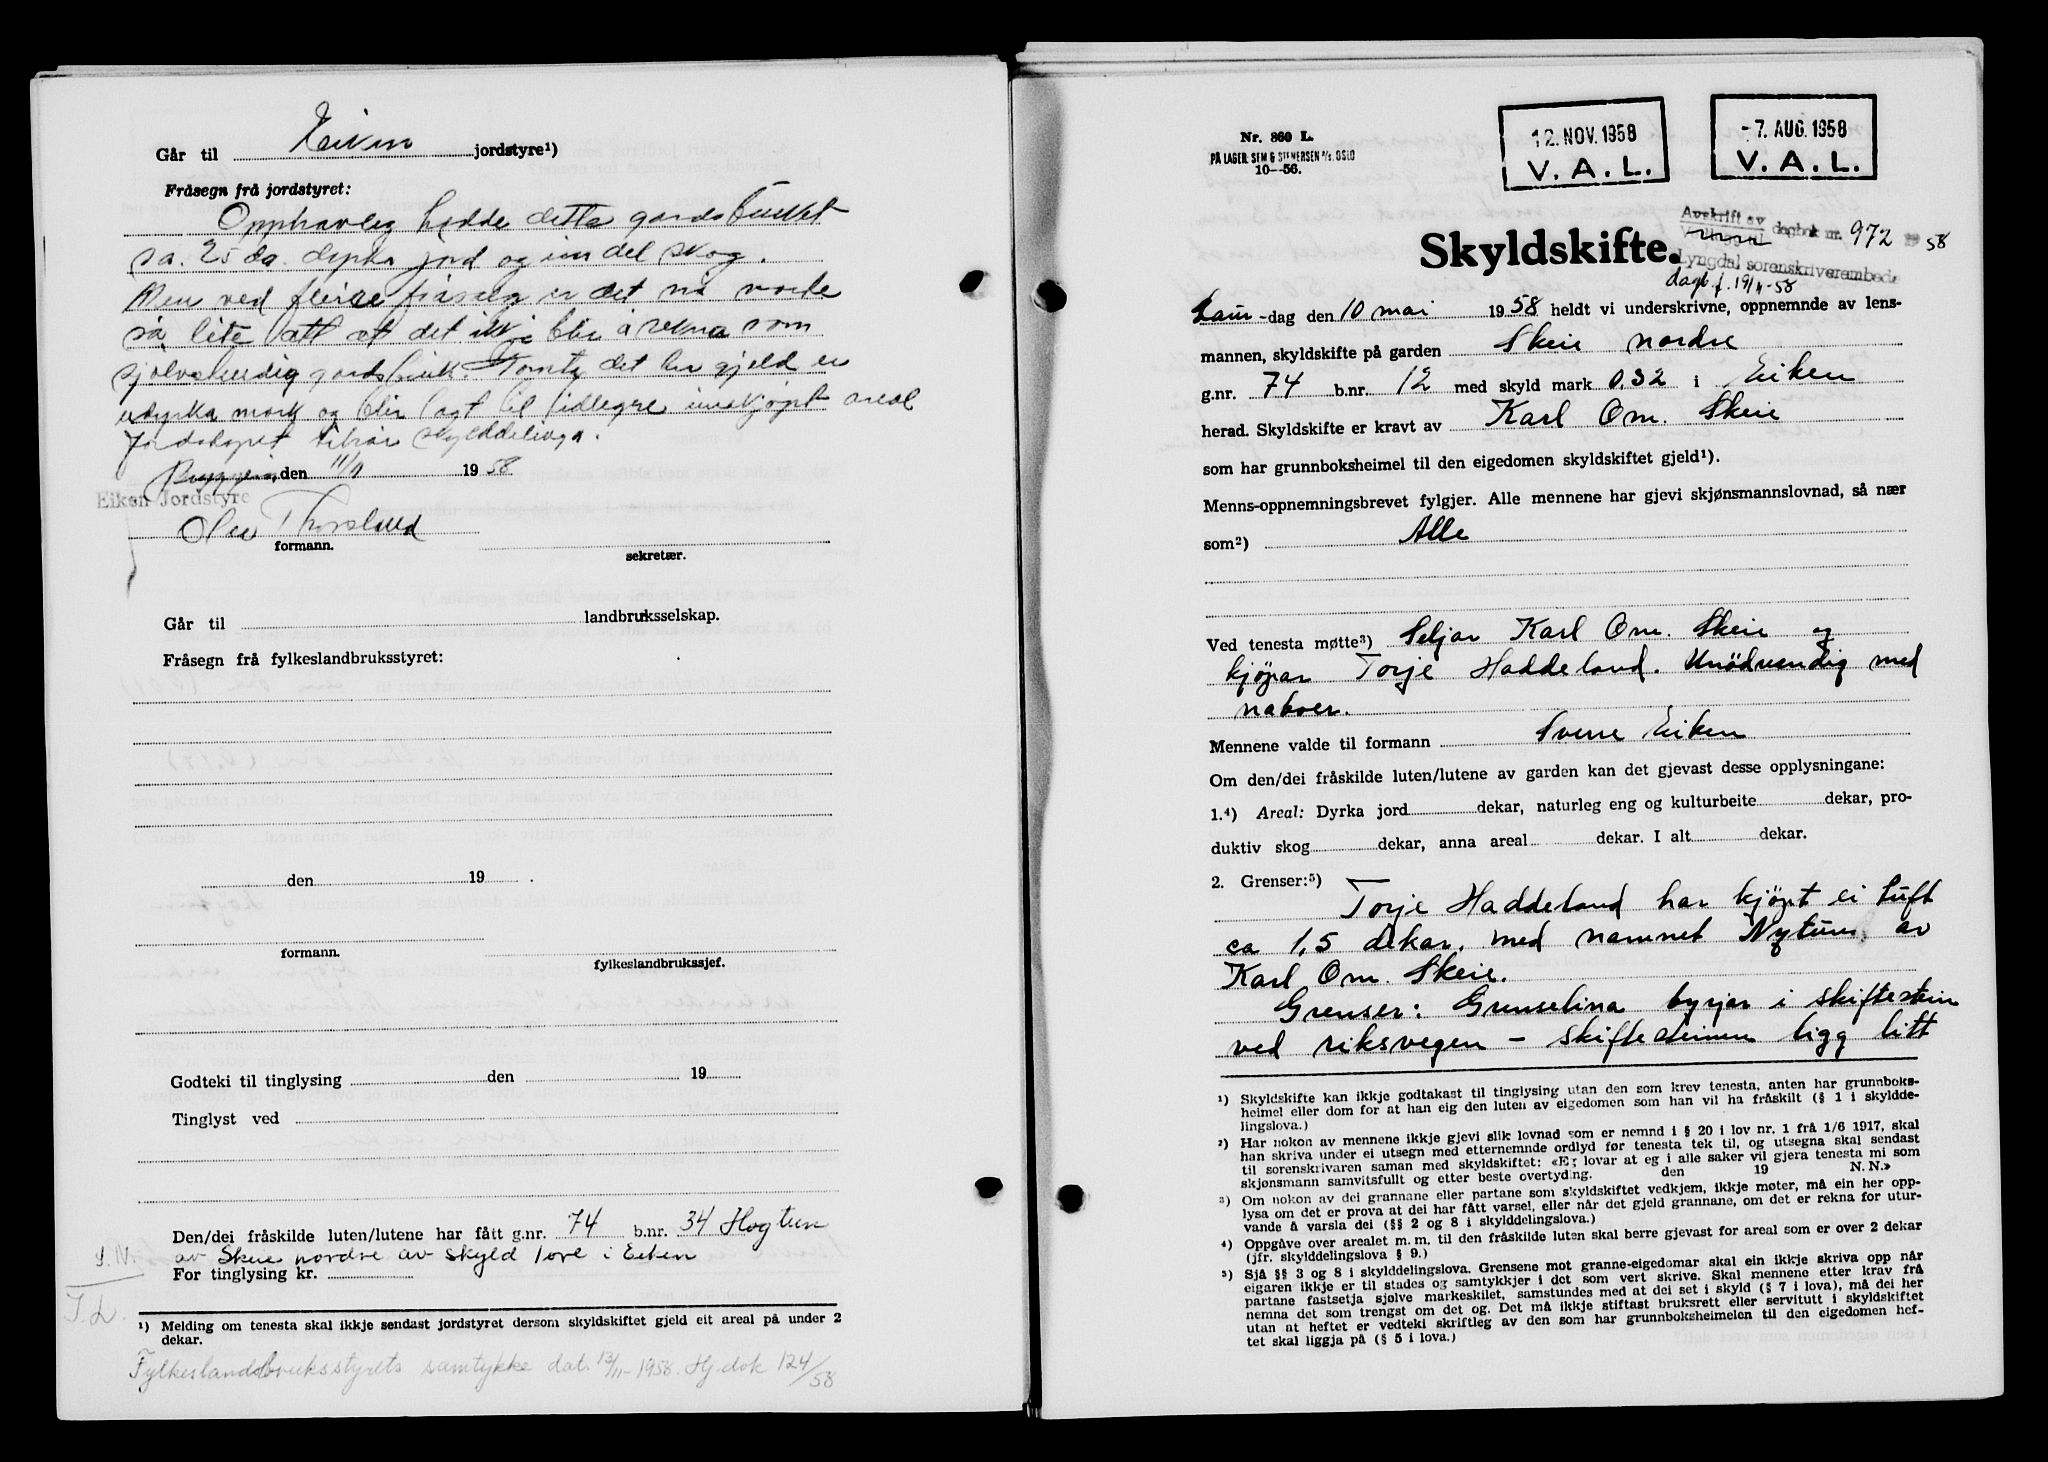 Går til Eiken jordstyre¹)
Fråsegn frå jordstyret:
Opphavleg hadde dette gardsbruket
ca. 25 da. dyrka jord og ein del skog.
Men ved fleire frasalg er det nå vorde
så lite att at det ikkje blir å rekna som
sjølvstendig gardsbruk. Tomta det her gjeld er
udyrka mark og blir lagt til tidlegre innkjøpt areal
Jordstyret tilrår skylddelinga.
den 11/11 1958
Eiken Jordstyre
Olav Thorsland
formann. sekretær.
Går til landbruksselskap.
Fråsegn frå fylkeslandbruksstyret:
den 19 .
formann. fylkeslandbrukssjef.
Godteki til tinglysing den 19
Tinglyst ved
Den/dei fråskilde luten/lutene har fått g.nr. 74 b.nr. 34 Hogtun
av Skeie nordre av skyld 1 øre i Eiken
For tinglysing kr.
¹) Melding om tenesta skal ikkje sendast jordstyret dersom skyldskiftet gjeld eit areal på under 2
dekar.
Fylkeslandsbruksstyrets samtykke dat. 13/11-1958. Hj.dok 124/58
Nr. 860 L.
PÅ LAGER: SEM & STENERSEN A/S. OSLO
10—56.
12. NOV. 1958
V. A. L.
-7. AUG. 1958
V. A. L.
Avskrift av
dagbok nr. 972 1958
Lyngdal sorenskriverembede
dagb. f. 19/11-58
Skyldskifte.
Laur-dag den 10 mai 1958 heldt vi underskrivne, oppnemnde av lens-
mannen, skyldskifte på garden Skeie nordre
g.nr. 74 b.nr. 12 med skyld mark 0.32 i Eiken
herad. Skyldskifte er kravt av Karl Om. Skeie
som har grunnboksheimel til den eigedomen skyldskiftet gjeld¹).
Menns-oppnemningsbrevet fylgjer. Alle mennene har gjevi skjønsmannslovnad, så nær
som²) Alle
Ved tenesta møtte³) Seljar Karl Om. Skeie og
kjöpar Torje Haddeland. Unödvendig med
naboer.
Mennene valde til formann Sverre Eiken
Om den/dei fråskilde luten/lutene av garden kan det gjevast desse opplysningane:
1.⁴) Areal: Dyrka jord dekar, naturleg eng og kulturbeite dekar, pro-
duktiv skog dekar, anna areal dekar. I alt dekar.
2. Grenser:⁵)
Torje Haddeland har kjöpt ei tuft
ca 1,5 dekar. med namnet Nytun av
Karl Om. Skeie.
Grenser: Grenselina byrjar i skiftestein
ved riksvegen – skiftesteinen ligg litt
¹) Skyldskifte kan ikkje godtakast til tinglysing utan den som krev tenesta, anten har grunnboks-
heimel eller dom for at han eig den luten av eigedomen som han vil ha fråskilt (§ 1 i skyldde-
lingslova.)
²) Har nokon av mennene ikkje gjevi slik lovnad som er nemnd i § 20 i lov nr. 1 frå 1/6 1917, skal
han skriva under ei utsegn med etternemnde ordlyd før tenesta tek til, og utsegna skal sendast
til sorenskrivaren saman med skyldskiftet: «Eg lovar at eg i alle saker vil gjera tenesta mi som
skjønsmann samvitsfullt og etter beste overtyding. den 19 N. N.»
³) Om nokon av dei grannane eller partane som skyldskiftet vedkjem, ikkje møter, må ein her opp-
lysa om det er prova at dei har fått varsel, eller når det gjeld grannane, om det er rekna for utur-
vande å varsla dei (§§ 2 og 8 i skylddelingslova.)
⁴) Oppgåve over arealet m. m. til den fråskilde luten skal berre gjevast for areal som er over 2 dekar
(jfr. skylddelingslova § 9.)
⁵) Sjå §§ 3 og 8 i skylddelingslova. Grensene mot granne-eigedomar skal ein ikkje skriva opp når
eigaren ikkje er til stades og samtykkjer i det som vert skrive. Skal mennene etter krav frå
partane fastsetja sjølve markeskilet, samstundes med at dei set i skyld (§ 7 i lova), må dei her
nemna det som trengst om det og. Det må ikkje stiftast bruksrett eller servitutt i skyldskiftet
utan at heftet er vedteki skriftleg av den som har grunnboksheimelen til den eigedomen hef-
tet skal liggja på (§ 5 i lova.)